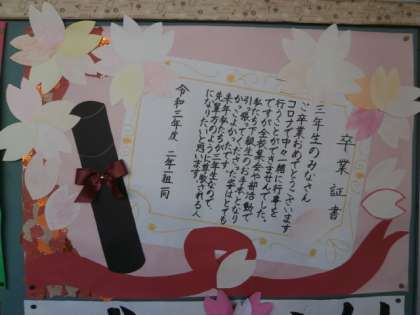 卒業証書
三年生のみなさん
ご卒業おめでとうございます
コロナで中々一緒に行事を
行うことができませんでした。
ですが、全校集会や部活動で
私たち下級生のお手本となり
引っ張って
かっこよかったです。
来年私たちが三年生なので
先輩方のように尊敬される人
になりたいと思います。
令和三年度 二年一組一同